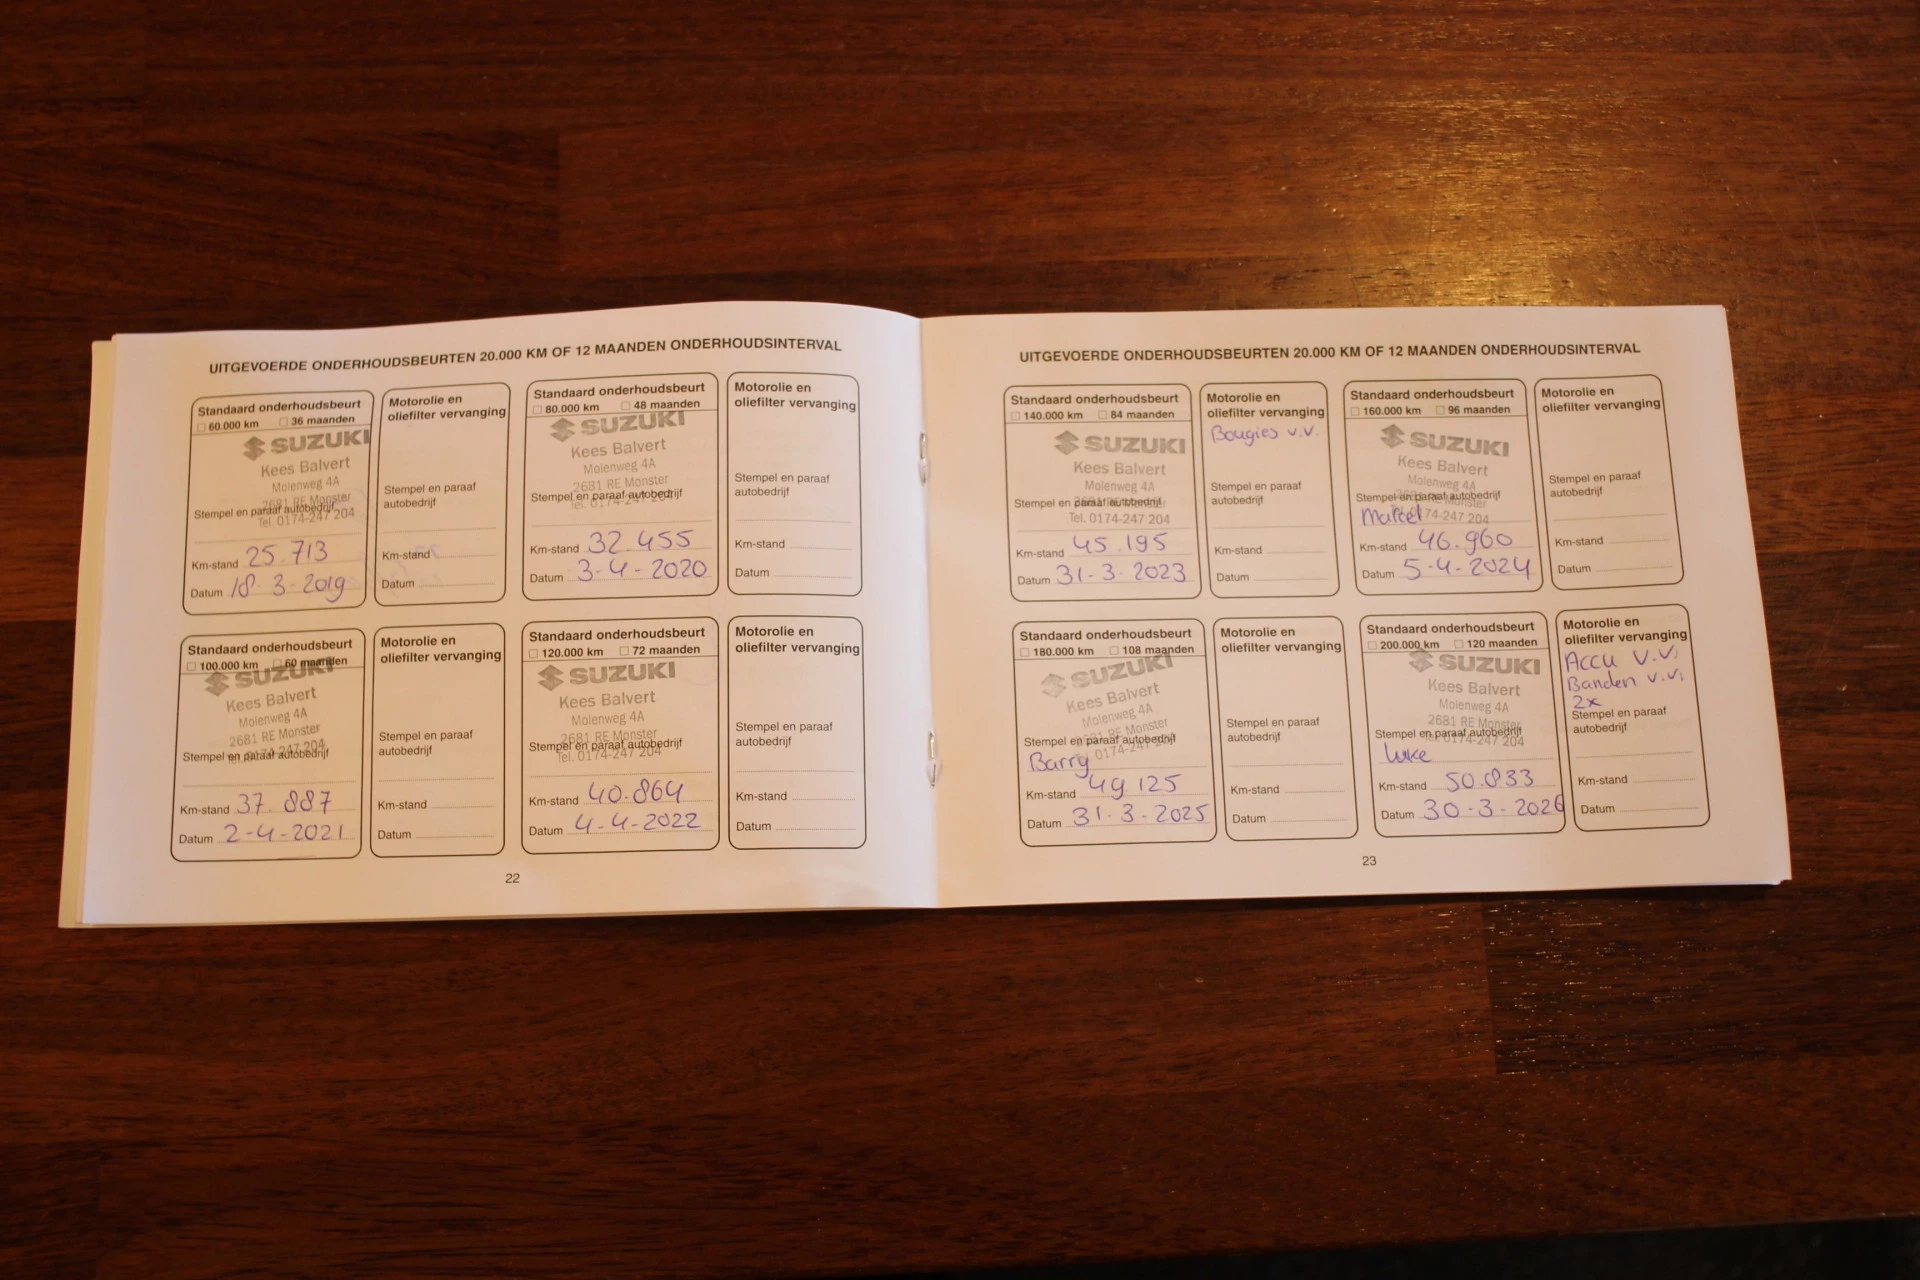 UITGEVOERDE ONDERHOUDSBEURTEN 20.000 KM OF 12 MAANDEN ONDERHOUDSINTERVAL
Standaard onderhoudsbeurt
60.000 km 36 maanden
SUZUKI
Kees Balvert
Molenweg 4A
2681 RE Monster
Stempel en paraaf autobedrijf
Tel. 0174-247 204
Km-stand 25.713
Datum 18-3-2019
Motorolie en
oliefilter vervanging
Stempel en paraaf
autobedrijf
Km-stand
Datum
Standaard onderhoudsbeurt
80.000 km 48 maanden
SUZUKI
Kees Balvert
Molenweg 4A
2681 RE Monster
Stempel en paraaf autobedrijf
Tel. 0174-247 204
Km-stand 32.455
Datum 3-4-2020
Motorolie en
oliefilter vervanging
Stempel en paraaf
autobedrijf
Km-stand
Datum
Standaard onderhoudsbeurt
100.000 km 60 maanden
SUZUKI
Kees Balvert
Molenweg 4A
2681 RE Monster
Tel. 0174-247 204
Stempel en paraaf autobedrijf
Km-stand 37.887
Datum 2-4-2021
Motorolie en
oliefilter vervanging
Stempel en paraaf
autobedrijf
Km-stand
Datum
Standaard onderhoudsbeurt
120.000 km 72 maanden
SUZUKI
Kees Balvert
Molenweg 4A
2681 RE Monster
Stempel en paraaf autobedrijf
Tel. 0174-247 204
Km-stand 40.864
Datum 4-4-2022
Motorolie en
oliefilter vervanging
Stempel en paraaf
autobedrijf
Km-stand
Datum
22
UITGEVOERDE ONDERHOUDSBEURTEN 20.000 KM OF 12 MAANDEN ONDERHOUDSINTERVAL
Standaard onderhoudsbeurt
140.000 km 84 maanden
SUZUKI
Kees Balvert
Molenweg 4A
2681 RE Monster
Stempel en paraaf autobedrijf
Tel. 0174-247 204
Km-stand 45.195
Datum 31-3-2023
Motorolie en
oliefilter vervanging
Bougies v.v.
Stempel en paraaf
autobedrijf
Km-stand
Datum
Standaard onderhoudsbeurt
160.000 km 96 maanden
SUZUKI
Kees Balvert
Molenweg 4A
2681 RE Monster
Stempel en paraaf autobedrijf
Tel. 0174-247 204
Marcel
Km-stand 46.960
Datum 5-4-2024
Motorolie en
oliefilter vervanging
Stempel en paraaf
autobedrijf
Km-stand
Datum
Standaard onderhoudsbeurt
180.000 km 108 maanden
SUZUKI
Kees Balvert
Molenweg 4A
2681 RE Monster
Stempel en paraaf autobedrijf
Tel. 0174-247 204
Barry
Km-stand 49.125
Datum 31-3-2025
Motorolie en
oliefilter vervanging
Stempel en paraaf
autobedrijf
Km-stand
Datum
Standaard onderhoudsbeurt
200.000 km 120 maanden
SUZUKI
Kees Balvert
Molenweg 4A
2681 RE Monster
Stempel en paraaf autobedrijf
Tel. 0174-247 204
Luke
Km-stand 50.833
Datum 30-3-2026
Motorolie en
oliefilter vervanging
Accu v.v.
Banden v.v.
2x
Stempel en paraaf
autobedrijf
Km-stand
Datum
23